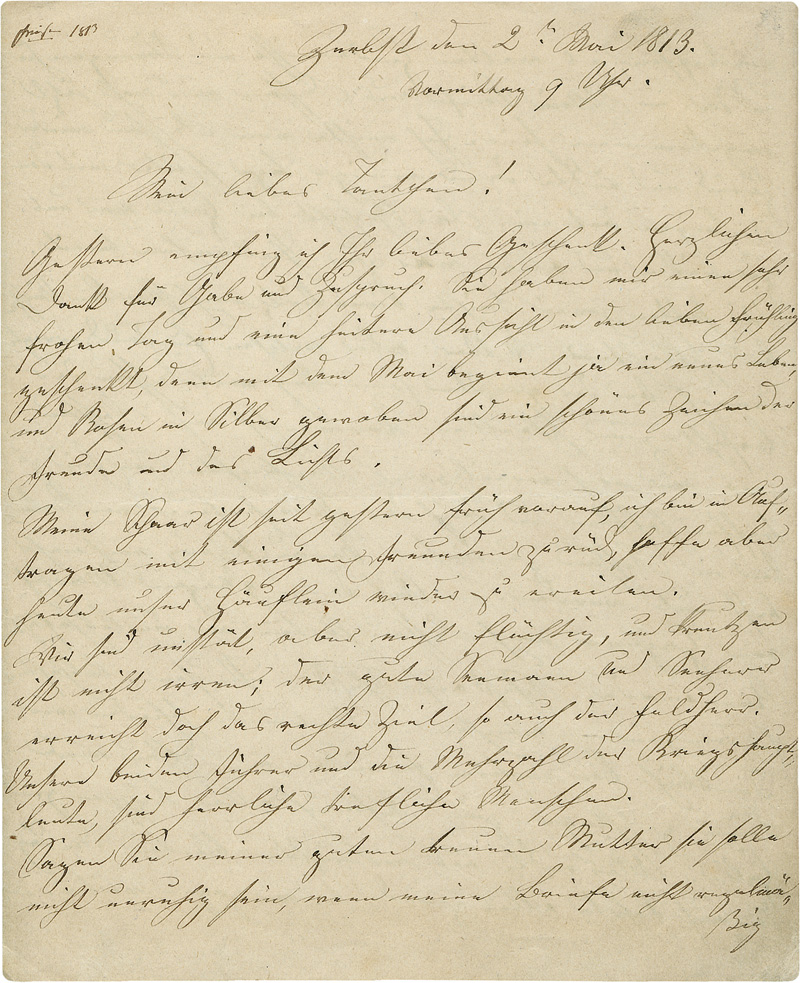 1813
Zerbst den 2n Mai 1813.
Vormittag 9 Uhr.
Mein liebes Tantchen!
Gestern empfing ich Ihr liebes Geschenk. Herzlichen
Dank für Gabe und Zuspruch. Sie haben mir einen sehr
frohen Tag und eine heitere Aussicht in den lieben Frühling
geschenkt, denn mit dem Mai beginnt ja ein neues Leben,
und Rosen in Silber gewoben sind ein schönes Zeichen der
Freude und des Lichts.
Meine Schaar ist seit gestern früh vorauf, ich bin in Auf-
tragen mit einigen Freunden zurück, hoffe aber
heute unser Häuflein wieder zu ereilen.
Wir sind unstät, aber nicht flüchtig, und kreutzen
ist nicht irren; der gute Seemann und Seeherr
erreicht doch das rechte Ziel, so auch der Feldherr.
Unsere beiden Führer und die Mehrzahl der Kriegshaupt-
leute, sind herrliche trefliche Menschen.
Sagen Sie meiner guten treuen Mutter sie solle
nicht unruhig sein, wenn meine Briefe nicht regelmä-
ßig